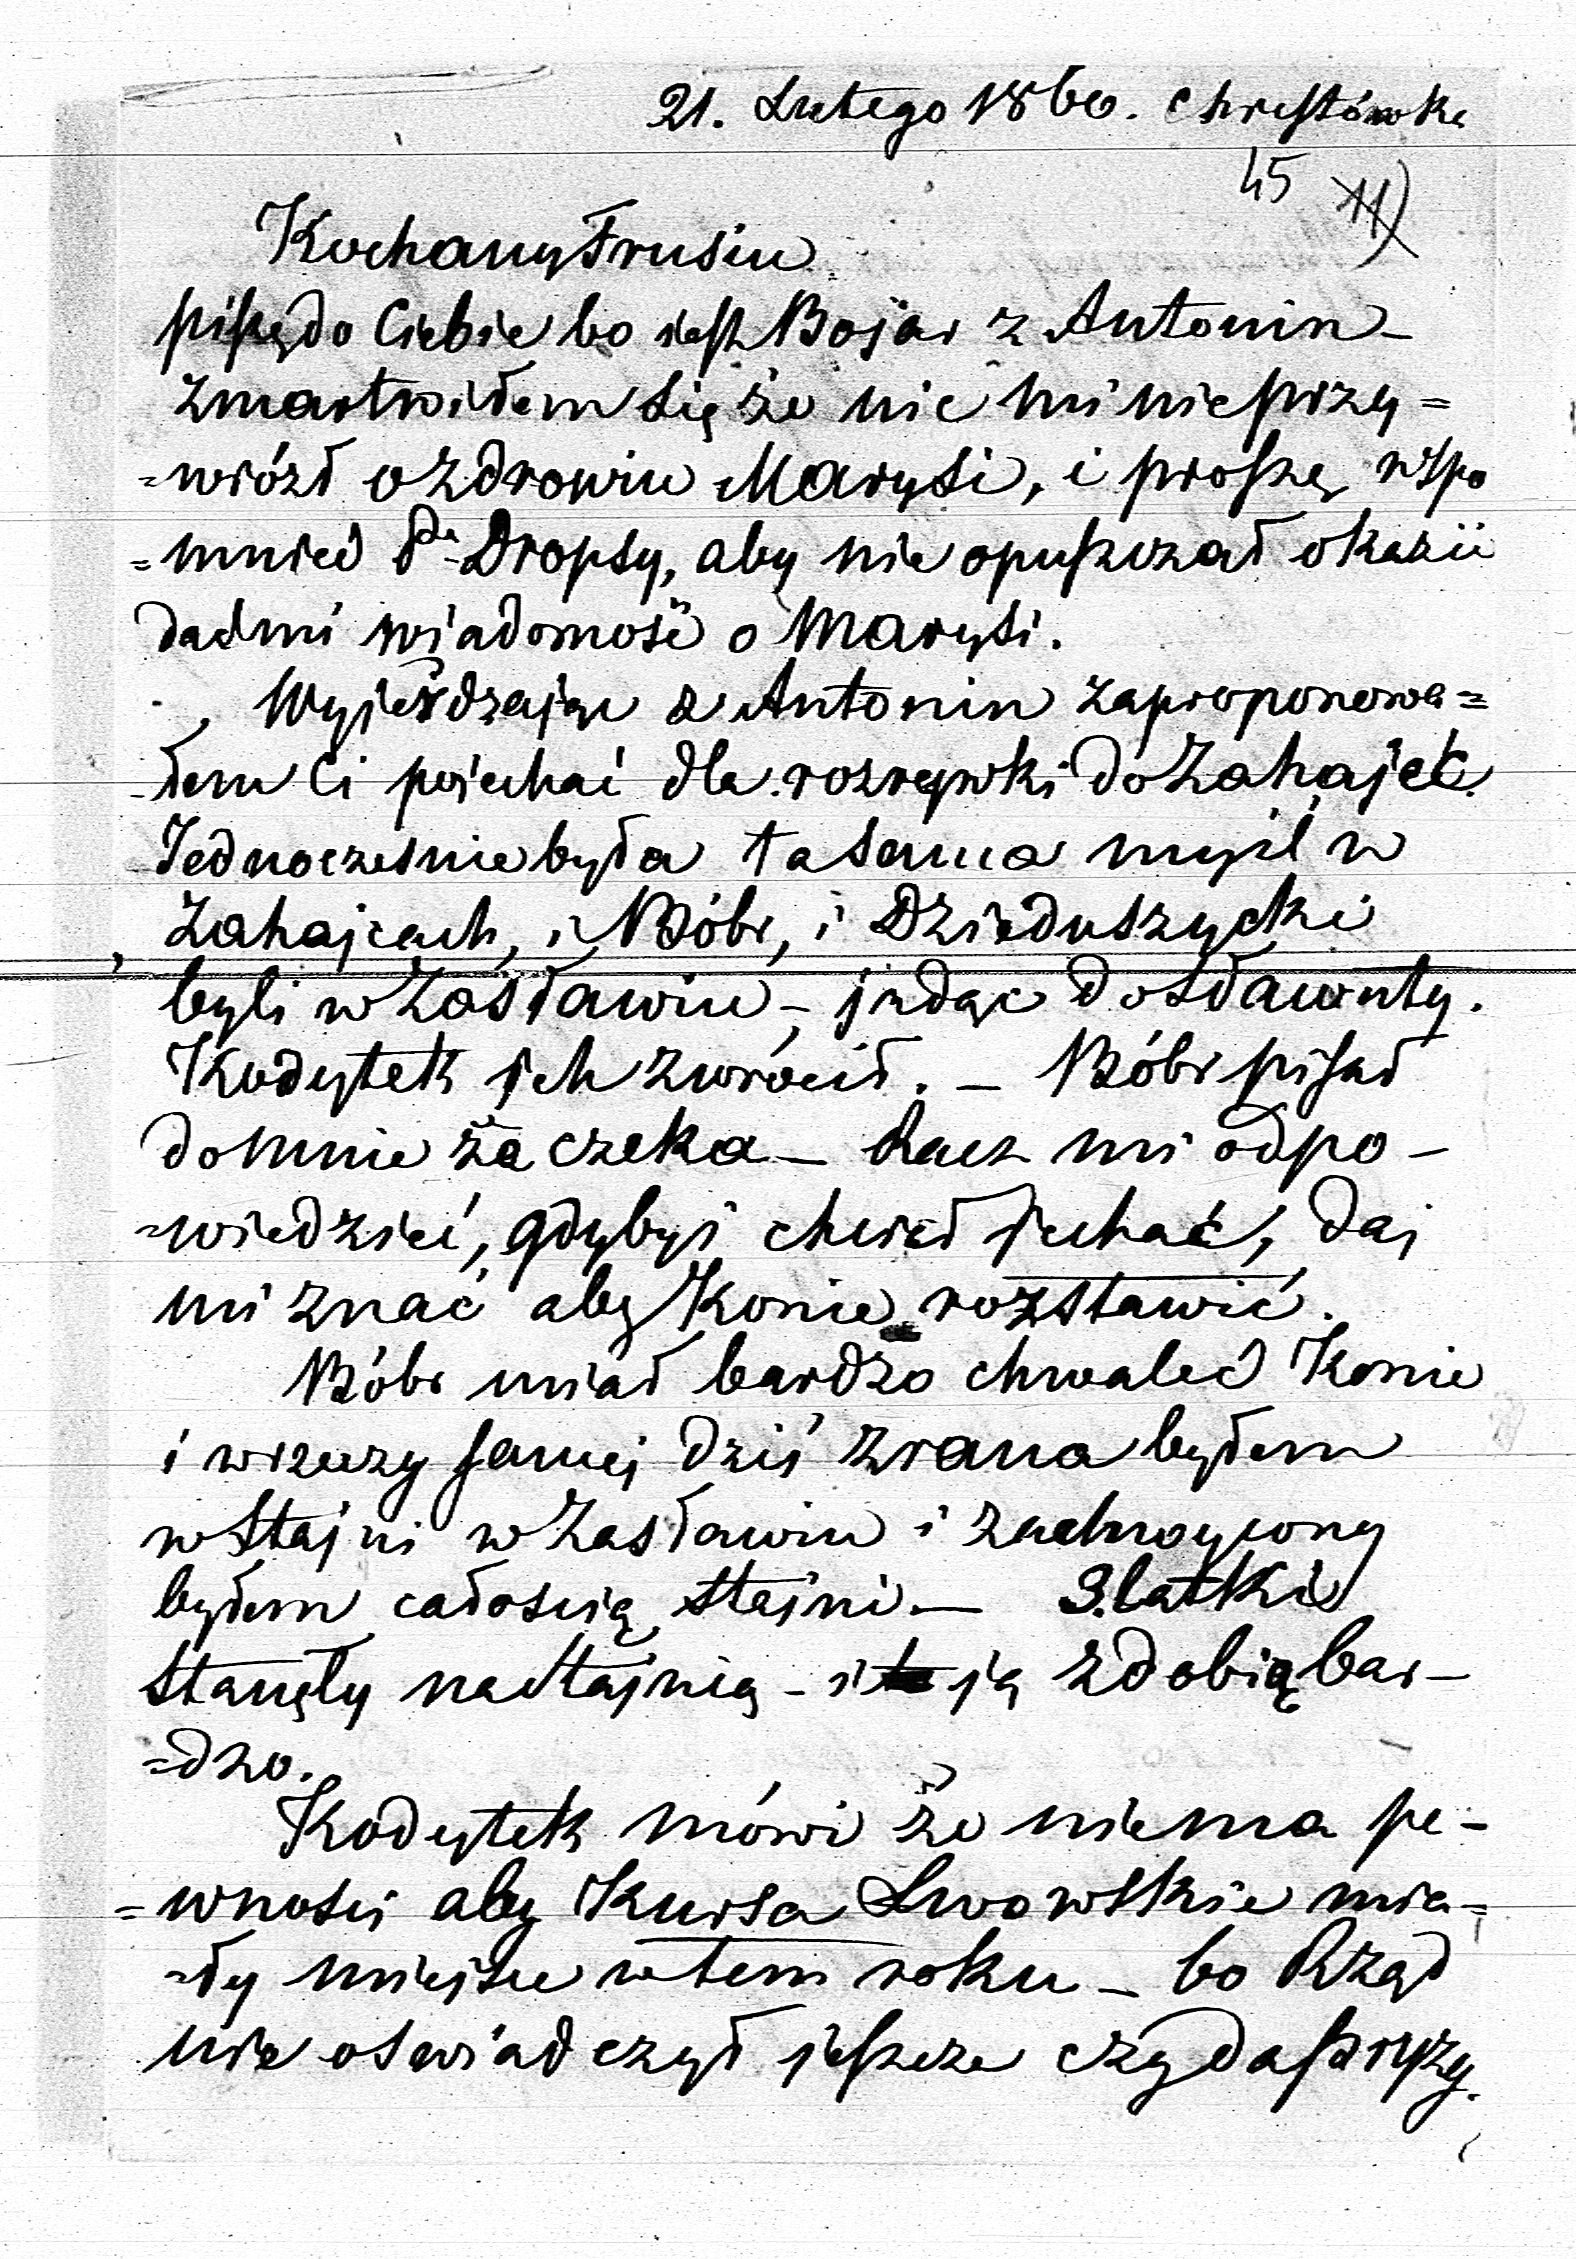 21. Lutego 1860. Chrestówka
45 11)
Kochany Frusiu
piszę do Ciebie bo jest Bojar z Antonin –
zmartwiłem się że nic mi nie przy=
=wiózł o zdrowiu Marysi, i proszę wspo
=mnieć Pa Dropsy, aby nie opuszczał okazii
dać mi wiadomość o Marysi.
Wyjeżdzając z Antonin zaproponowa=
-łem Ci pojechać dla rozrywki do Zahajec.
Jednocześnie była ta sama myśl w
Zahajcach, i Bóbr, i Dzieduszycki
byli w Zasławiu –, jadąc do Sławuty.
Kodytek ich zwrócił. – Bóbr pisał
do mnie że czeka – Racz mi odpo –
=wiedzieć, gdybyś chciał jechać, daj
mi znać aby Konie rozstawić.
Bóbr miał bardzo chwalić Konie
i w rzeczy samej dziś z rana byłem
w Stajni w Zasławiu i zachwycony
byłem całością stajni – 3.latki
stanęły na stajnią – i ją zdobią bar –
=dzo.
Kodytek mówi że niema pe –
=wności aby Kursa Lwowskie mia=
=ły miejsce w tem roku – bo Rząd
nie oświadczył jeszcze czy da pryzy.